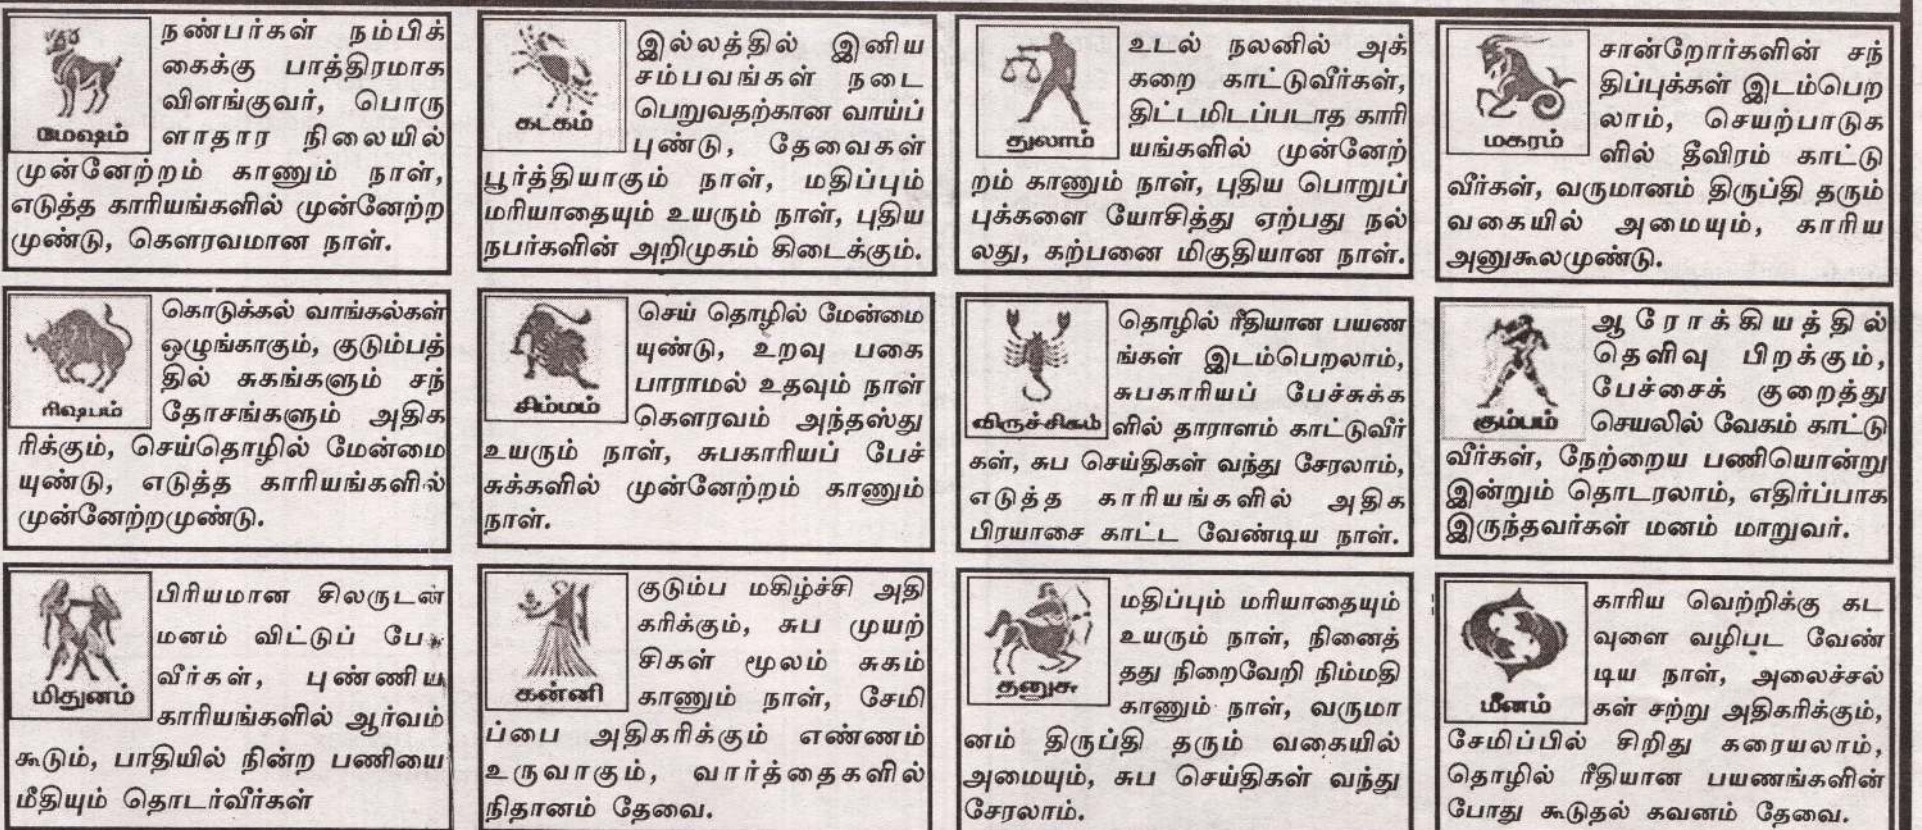 நண்பர்கள் நம்பிக்
கைக்கு பாத்திரமாக
விளங்குவர், பொரு
ளாதார நிலையில்
மேஷம்
முன்னேற்றம் காணும் நாள்,
எடுத்த காரியங்களில் முன்னேற்ற
முண்டு, கௌரவமான நாள்.
கொடுக்கல் வாங்கல்கள்
ஒழுங்காகும், குடும்பத்
தில் சுகங்களும் சந்
தோசங்களும் அதிக
ரிஷபம்
ரிக்கும், செய்தொழில் மேன்மை
யுண்டு, எடுத்த காரியங்களில்
முன்னேற்றமுண்டு.
பிரியமான சிலருடன்
மனம் விட்டுப் பேசு
வீர்கள், புண்ணிய
காரியங்களில் ஆர்வம்
மிதுனம்
கூடும், பாதியில் நின்ற பணியை
மீதியும் தொடர்வீர்கள்
இல்லத்தில் இனிய
சம்பவங்கள் நடை
பெறுவதற்கான வாய்ப்
புண்டு, தேவைகள்
கடகம்
பூர்த்தியாகும் நாள், மதிப்பும்
மரியாதையும் உயரும் நாள், புதிய
நபர்களின் அறிமுகம் கிடைக்கும்.
செய் தொழில் மேன்மை
யுண்டு, உறவு பகை
பாராமல் உதவும் நாள்
கௌரவம் அந்தஸ்து
சிம்மம்
உயரும் நாள், சுபகாரியப் பேச்
சுக்களில் முன்னேற்றம் காணும்
நாள்.
குடும்ப மகிழ்ச்சி அதி
கரிக்கும், சுப முயற்
சிகள் மூலம் சுகம்
காணும் நாள், சேமி
கன்னி
ப்பை அதிகரிக்கும் எண்ணம்
உருவாகும், வார்த்தைகளில்
நிதானம் தேவை.
உடல் நலனில் அக்
கறை காட்டுவீர்கள்,
திட்டமிடப்படாத காரி
யங்களில் முன்னேற்
துலாம்
றம் காணும் நாள், புதிய பொறுப்
புக்களை யோசித்து ஏற்பது நல்
லது, கற்பனை மிகுதியான நாள்.
தொழில் ரீதியான பயண
ங்கள் இடம்பெறலாம்,
சுபகாரியப் பேச்சுக்க
ளில் தாராளம் காட்டுவீர்
விருச்சிகம்
கள், சுப செய்திகள் வந்து சேரலாம்,
எடுத்த காரியங்களில் அதிக
பிரயாசை காட்ட வேண்டிய நாள்.
மதிப்பும் மரியாதையும்
உயரும் நாள், நினைத்
தது நிறைவேறி நிம்மதி
காணும் நாள், வருமா
தனுசு
னம் திருப்தி தரும் வகையில்
அமையும், சுப செய்திகள் வந்து
சேரலாம்.
சான்றோர்களின் சந்
திப்புக்கள் இடம்பெற
லாம், செயற்பாடுக
ளில் தீவிரம் காட்டு
மகரம்
வீர்கள், வருமானம் திருப்தி தரும்
வகையில் அமையும், காரிய
அனுகூலமுண்டு.
ஆரோக்கியத்தில்
தெளிவு பிறக்கும்,
பேச்சைக் குறைத்து
செயலில் வேகம் காட்டு
கும்பம்
வீர்கள், நேற்றைய பணியொன்று
இன்றும் தொடரலாம், எதிர்ப்பாக
இருந்தவர்கள் மனம் மாறுவர்.
காரிய வெற்றிக்கு கட
வுளை வழிபட வேண்
டிய நாள், அலைச்சல்
கள் சற்று அதிகரிக்கும்,
மீனம்
சேமிப்பில் சிறிது கரையலாம்,
தொழில் ரீதியான பயணங்களின்
போது கூடுதல் கவனம் தேவை.